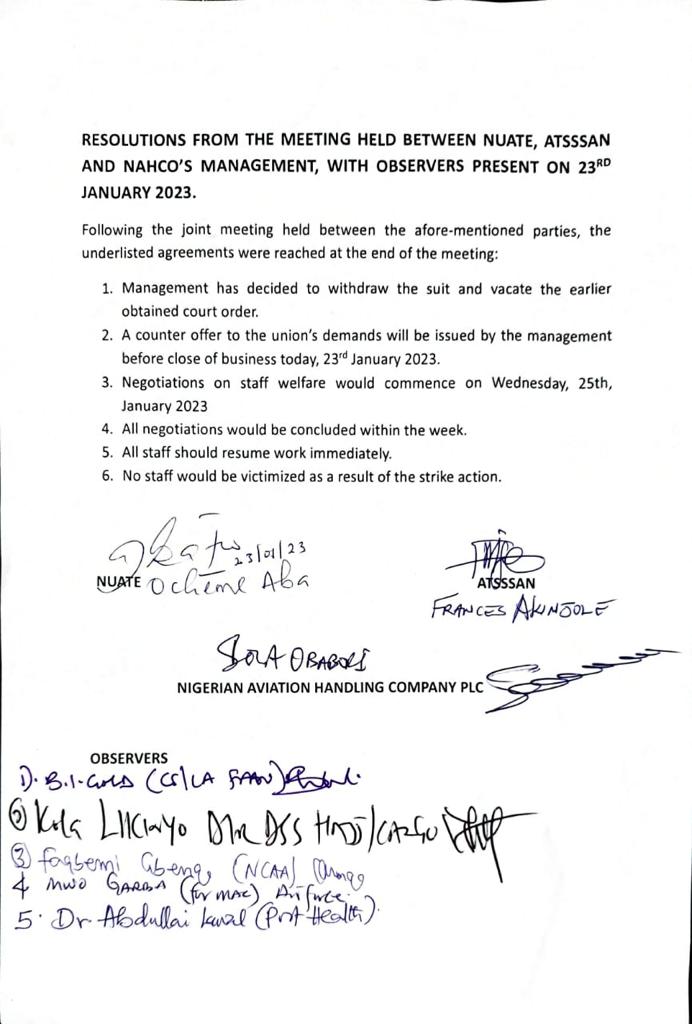 RESOLUTIONS FROM THE MEETING HELD BETWEEN NUATE, ATSSSAN
AND NAHCO'S MANAGEMENT, WITH OBSERVERS PRESENT ON 23RD
JANUARY 2023.
Following the joint meeting held between the afore-mentioned parties, the
underlisted agreements were reached at the end of the meeting:
1. Management has decided to withdraw the suit and vacate the earlier
obtained court order.
2. A counter offer to the union's demands will be issued by the management
before close of business today, 23rd January 2023.
3. Negotiations on staff welfare would commence on Wednesday, 25th,
January 2023
4. All negotiations would be concluded within the week.
5. All staff should resume work immediately.
6. No staff would be victimized as a result of the strike action.
23/01/23
NUATE Ocheme Aba
ATSSSAN
FRANCES AKINJOLE
SOLA OBABORI
NIGERIAN AVIATION HANDLING COMPANY PLC
OBSERVERS
1). B.I. Gold (CS/LA FAAN)
2 Kola DSS
3 Fagbemi Gbenga (NCAA)
4 MWO GARBA (for MAC) Airforce
5. Dr Abdullai (Port Health).